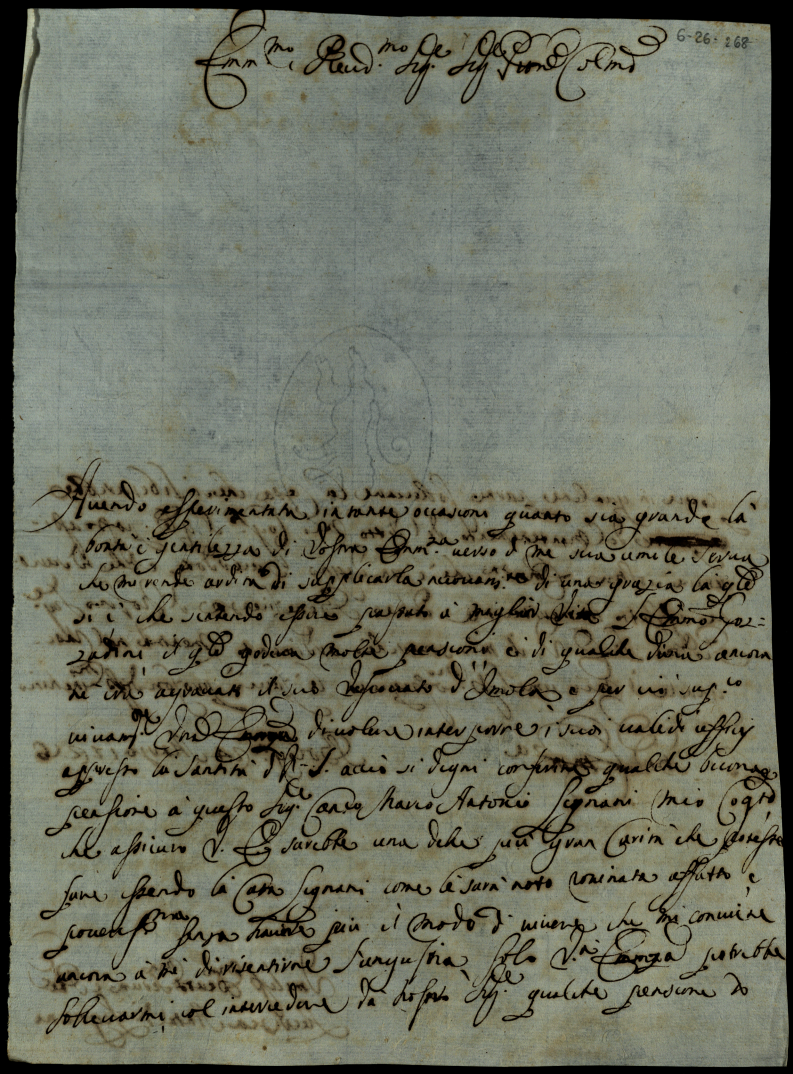 6-26-268
Emm.mo Reud.mo Sig.re Sig.re Prone Colmo
Auendo esperimentata in tante occasioni quanto sia grande la
bontà e gentilezza di Vostra Emm.za uerso di me sua umile serua
che mi rende ardita di supplicarla nuouam.te di una grazia la qle
si è che sentendo essere passato à miglior Vita Emmo Goz=
zadini il qle godeua molte pensioni e di qualche ancora
agrauato il suo Vescouato d'Imola e per ciò sup.co
uiuam.te di uolere interporre i suoi ualidi uffici
appresso la Santità di N. S. acciò si degni conferire qualche buona
pensione à questo Sig.re Canco Marco Antonio Signani mio Cogto
che assicuro V. E sarebbe una delle più gran Carità che potesse
fare essendo la Casa Signani come le sarà noto rouinata affatto e
pouerissma senza hauere più il modo di uiuere che mi conuiene
ancora à me di risentirne l'angustia solo V.ra Emza potrebbe
solleuarmi col intercedere da Nostro Sig.re qualche pensione